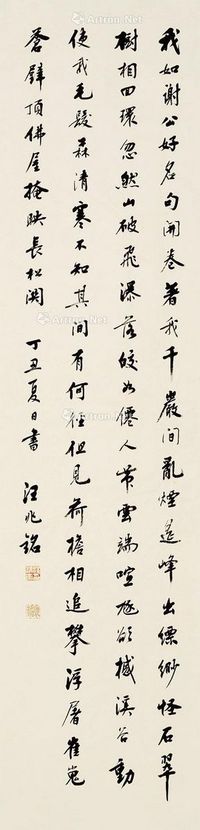 我如謝公好名句開卷著我千巖間亂煙遙峰出縹緲怪石翠
樹相四環忽然山破飛瀑落皎如僊人帶雲端喧豗欲撼溪谷動
使我毛髮森清寒不知其間有何徑但見荷擔相追攀浮屠崔嵬
蒼壁頂佛屋掩映長松關 丁丑夏日書 汪兆銘